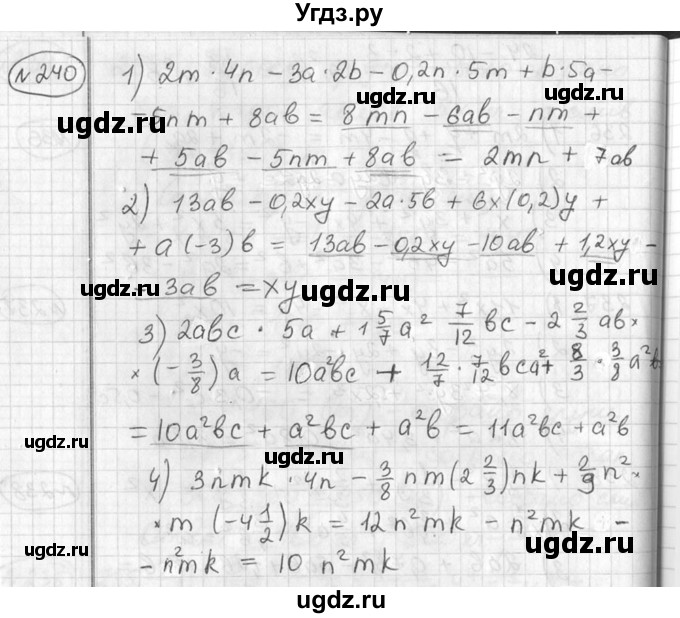 Угдз.ру
№240
1) 2m · 4n - 3a · 2b - 0,2n · 5m + b · 5a -
- 5nm + 8ab = 8mn - 6ab - nm +
+ 5ab - 5nm + 8ab = 2mn + 7ab
2) 13ab - 0,2xy - 2a · 5b + 6x(0,2)y +
+ a(-3)b = 13ab - 0,2xy - 10ab + 1,2xy -
- 3ab = xy
3) 2abc · 5a + 1 5/7 a² 7/12 bc - 2 2/3 ab ×
× (- 3/8) a = 10a²bc + 12/7 · 7/12 bca² + 8/3 · 3/8 a²b
= 10a²bc + a²bc + a²b = 11a²bc + a²b
4) 3nmk · 4n - 3/8 nm(2 2/3)nk + 2/9 n² ×
× m(-4 1/2)k = 12n²mk - n²mk -
- n²mk = 10 n²mk
ugdz.ru
ugdz.ru
ugdz.ru
ugdz.ru
ugdz.ru
ugdz.ru
ugdz.ru
ugdz.ru
ugdz.ru
ugdz.ru
ugdz.ru
ugdz.ru